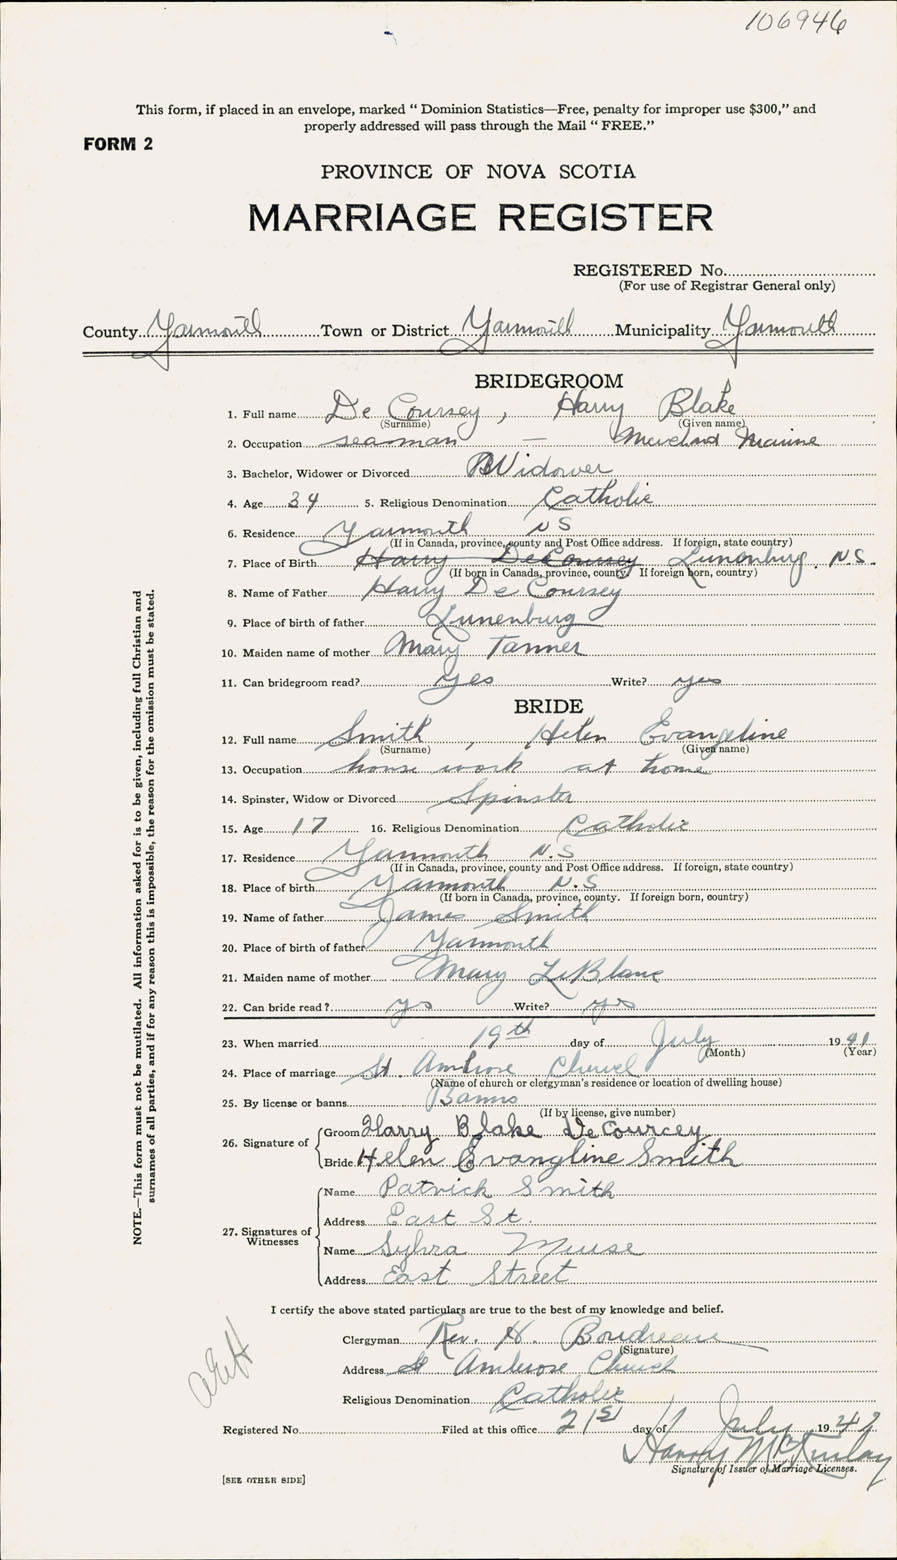 106946
This form, if placed in an envelope, marked “ Dominion Statistics—Free, penalty for improper use $300,” and
properly addressed will pass through the Mail “ FREE.”
FORM 2
PROVINCE OF NOVA SCOTIA
MARRIAGE REGISTER
REGISTERED No.
(For use of Registrar General only)
County Yarmouth Town or District Yarmouth Municipality Yarmouth
BRIDEGROOM
1. Full name De Coursey, Harry Blake
(Surname) (Given name)
2. Occupation seaman — Marine
3. Bachelor, Widower or Divorced Widower
4. Age 34 5. Religious Denomination Catholic
6. Residence Yarmouth NS
(If in Canada, province, county and Post Office address. If foreign, state country)
7. Place of Birth Harry DeCoursey Lunenburg. N.S.
(If born in Canada, province, county. If foreign born, country)
8. Name of Father Harry De Coursey
9. Place of birth of father Lunenburg
10. Maiden name of mother Mary Tanner
11. Can bridegroom read? yes Write? yes
BRIDE
12. Full name Smith, Helen Evangeline
(Surname) (Given name)
13. Occupation house work at home
14. Spinster, Widow or Divorced Spinster
15. Age 17 16. Religious Denomination Catholic
17. Residence Yarmouth N.S
(If in Canada, province, county and Post Office address. If foreign, state country)
18. Place of birth Yarmouth N.S
(If born in Canada, province, county. If foreign born, country)
19. Name of father James Smith
20. Place of birth of father Yarmouth
21. Maiden name of mother Mary LeBlanc
22. Can bride read? yes Write? yes
23. When married 19th day of July 19
(Month) (Year)
24. Place of marriage St. Ambrose Church
(Name of church or clergyman's residence or location of dwelling house)
25. By license or banns Banns
(If by license, give number)
26. Signature of Groom Harry Blake DeCourcey
Bride Helen Evangline Smith
27. Signatures of Witnesses
Name Patrick Smith
Address East St.
Name Sylvra Muise
Address East Street
I certify the above stated particulars are true to the best of my knowledge and belief.
Clergyman Rev. H. Boudreau
(Signature)
Address St Ambrose Church
Religious Denomination Catholic
Registered No. Filed at this office 21st day of July 1942
Harry McKinlay
Signature of Issuer of Marriage Licenses.
[SEE OTHER SIDE]
NOTE.—This form must not be mutilated. All information asked for is to be given, including full Christian and
surnames of all parties, and if for any reason this is impossible, the reason for the omission must be stated.